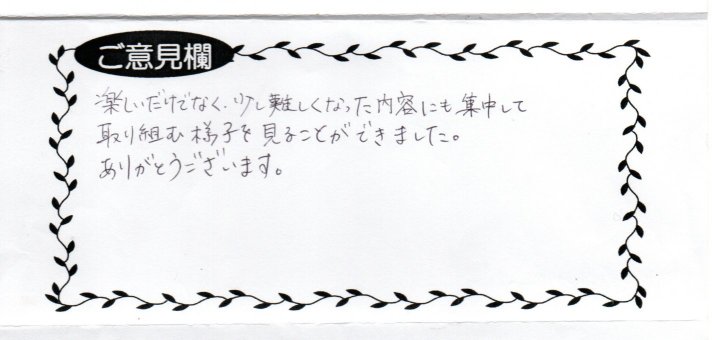 ご意見欄
楽しいだけでなく、少し難しくなった内容にも集中して
取り組む様子を見ることができました。
ありがとうございます。